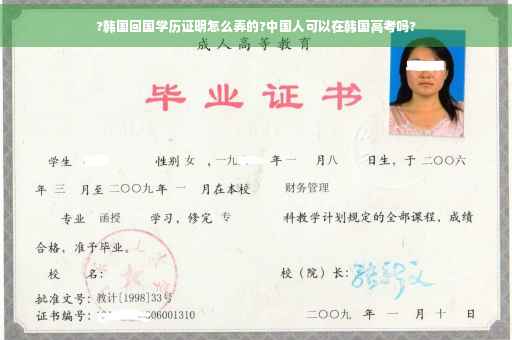 ?韩国回国学历证明怎么弄的?中国人可以在韩国高考吗?
成人高等教育
毕业证书
学生 性别 女 ，一九 年 一 月八 日生，于 二〇〇六
年 三 月至 二〇〇九 年 一 月在本校 财务管理
专业 函授 学习，修完 专 科教学计划规定的全部课程，成绩
合格，准予毕业。
校 名： 校（院）长：
批准文号：教计[1998]33号
证书编号： 06001310 二〇〇九 年 一 月 十 日